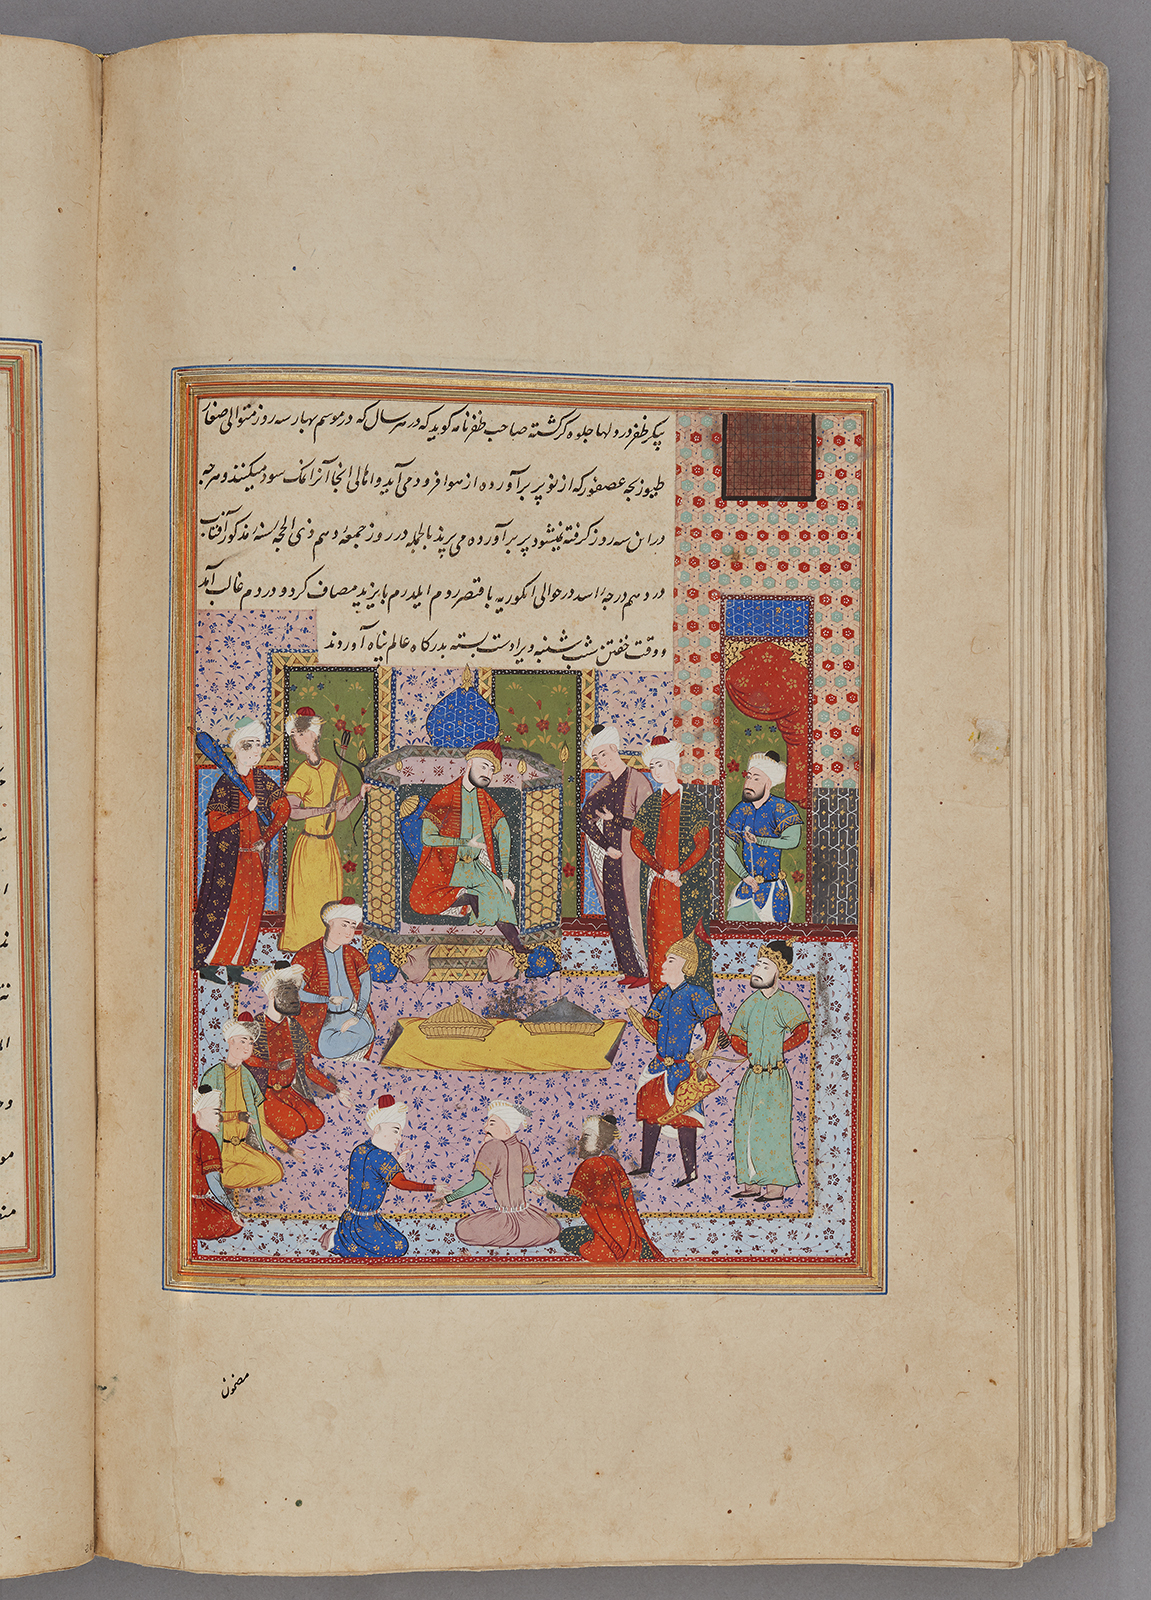 پیکر ظفر در ولها جلوه کر کشته صاحب ظفرنامه کوید که در هر سال که در موسم بهار سه روز متوالی صغار
طیور بجه عصفور که از نو پر برآورده از هوا فرود می آید و اهالی انجا آنرا نمک سود میکنند و هرجه
در این سه روز کرفته نمیشود پر برآورده می پرد بالجمله در روز جمعه دهم ذی الحجه سنه مذکور آفتاب
در دهم درجه اسد در حوالی انکوریه با قیصر روم ایلدرم بایزید مصاف کرد و در دم غالب آمد
و وقت خفتن شب شنبه ویرا دست بسته بدرکاه عالم پناه آوردند
مضمون